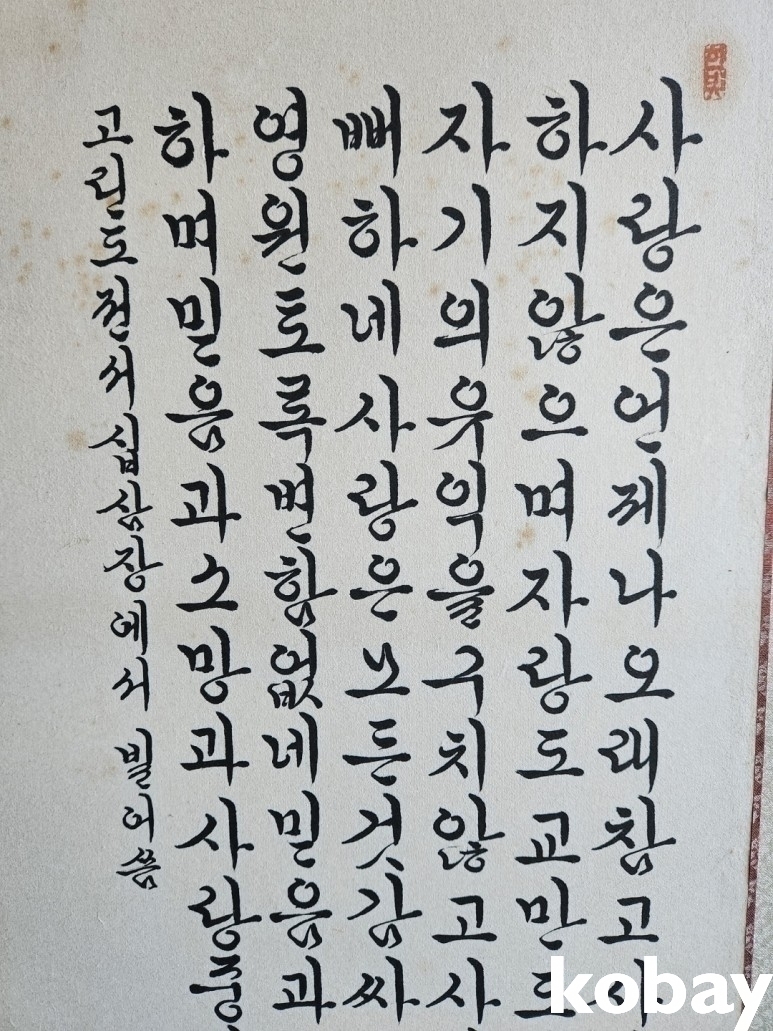 사랑은언제나오래참고사
하지않으며자랑도교만도
자기의유익을구치않고사
뻐하네사랑은모든것감싸
영원토록변함없네믿음과
하며믿음과소망과사랑중
고린도전서십삼장에서 빌어씀
kobay